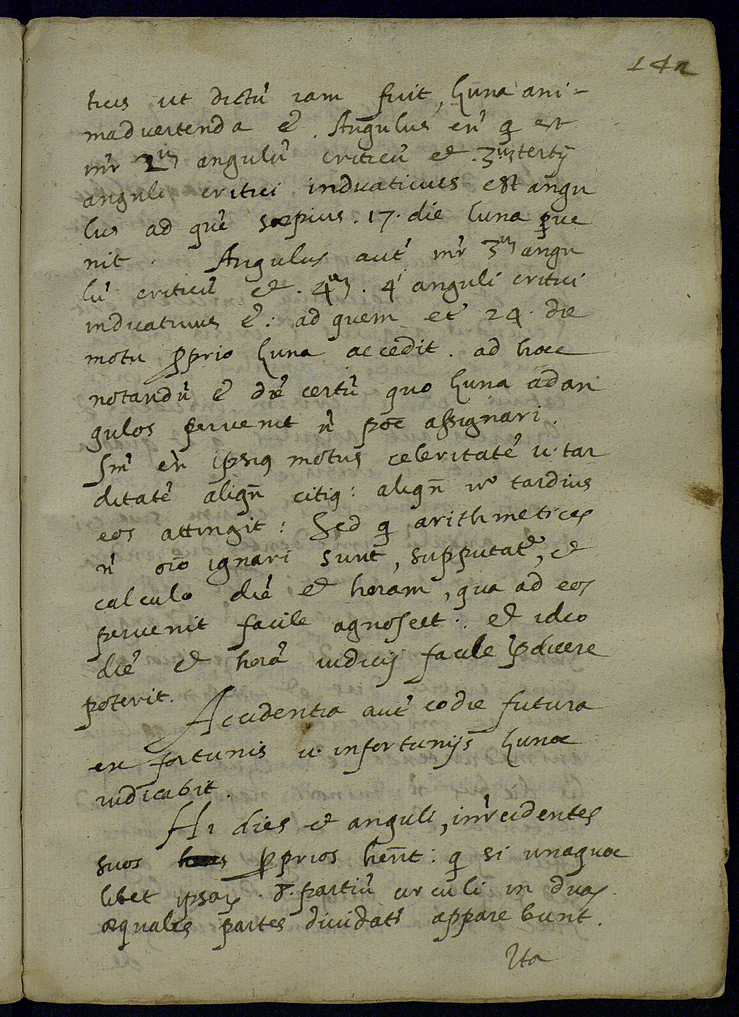 142
ticus ut dictũ iam fuit, Luna ani-
madvertenda ẽ. Angulus en̄ q̄ est
int̄r 2ũ angulũ criticũ et .3ũ tertij
anguli critici indicativus est angu
lus ad quẽ sæpius .17. die luna ꝑve
nit. Angulus aut̃ int̄r 3ũ angu
lũ criticũ et .4ũ. 4i anguli critici
indicativus ẽ: ad quem et 24. die
motu ꝓprio Luna accedit. ad hæc
notandũ ẽ diẽ certũ quo Luna ad an
gulos pervenit ñ põe assignari.
Sm̃ en̄ ipsiꝰ motus celeritatẽ u. tar
ditatẽ aliqñ citiꝰ: aliqñ vº tardius
eos attingit: Sed q̄ arithmetices
ñ oĩo ignari sunt, supputatẽ, et
calculo diẽ et horam, qua ad eos
pervenit facile agnoscet. et ideo
diẽ et horã iudicij facile p̄dicere
poterit.
Accidentia aut̃ eo die futura
ex fortunis u. infortunijs Lunæ
iudicabit.
Hi dies et anguli, int̄rcidentes
suos ꝓprios hen̄t: q̄ si unaquæ
libet ipsaꝝ .8. partiũ circuli in duas
æquales partes dividat̃ apparebunt.
Ita